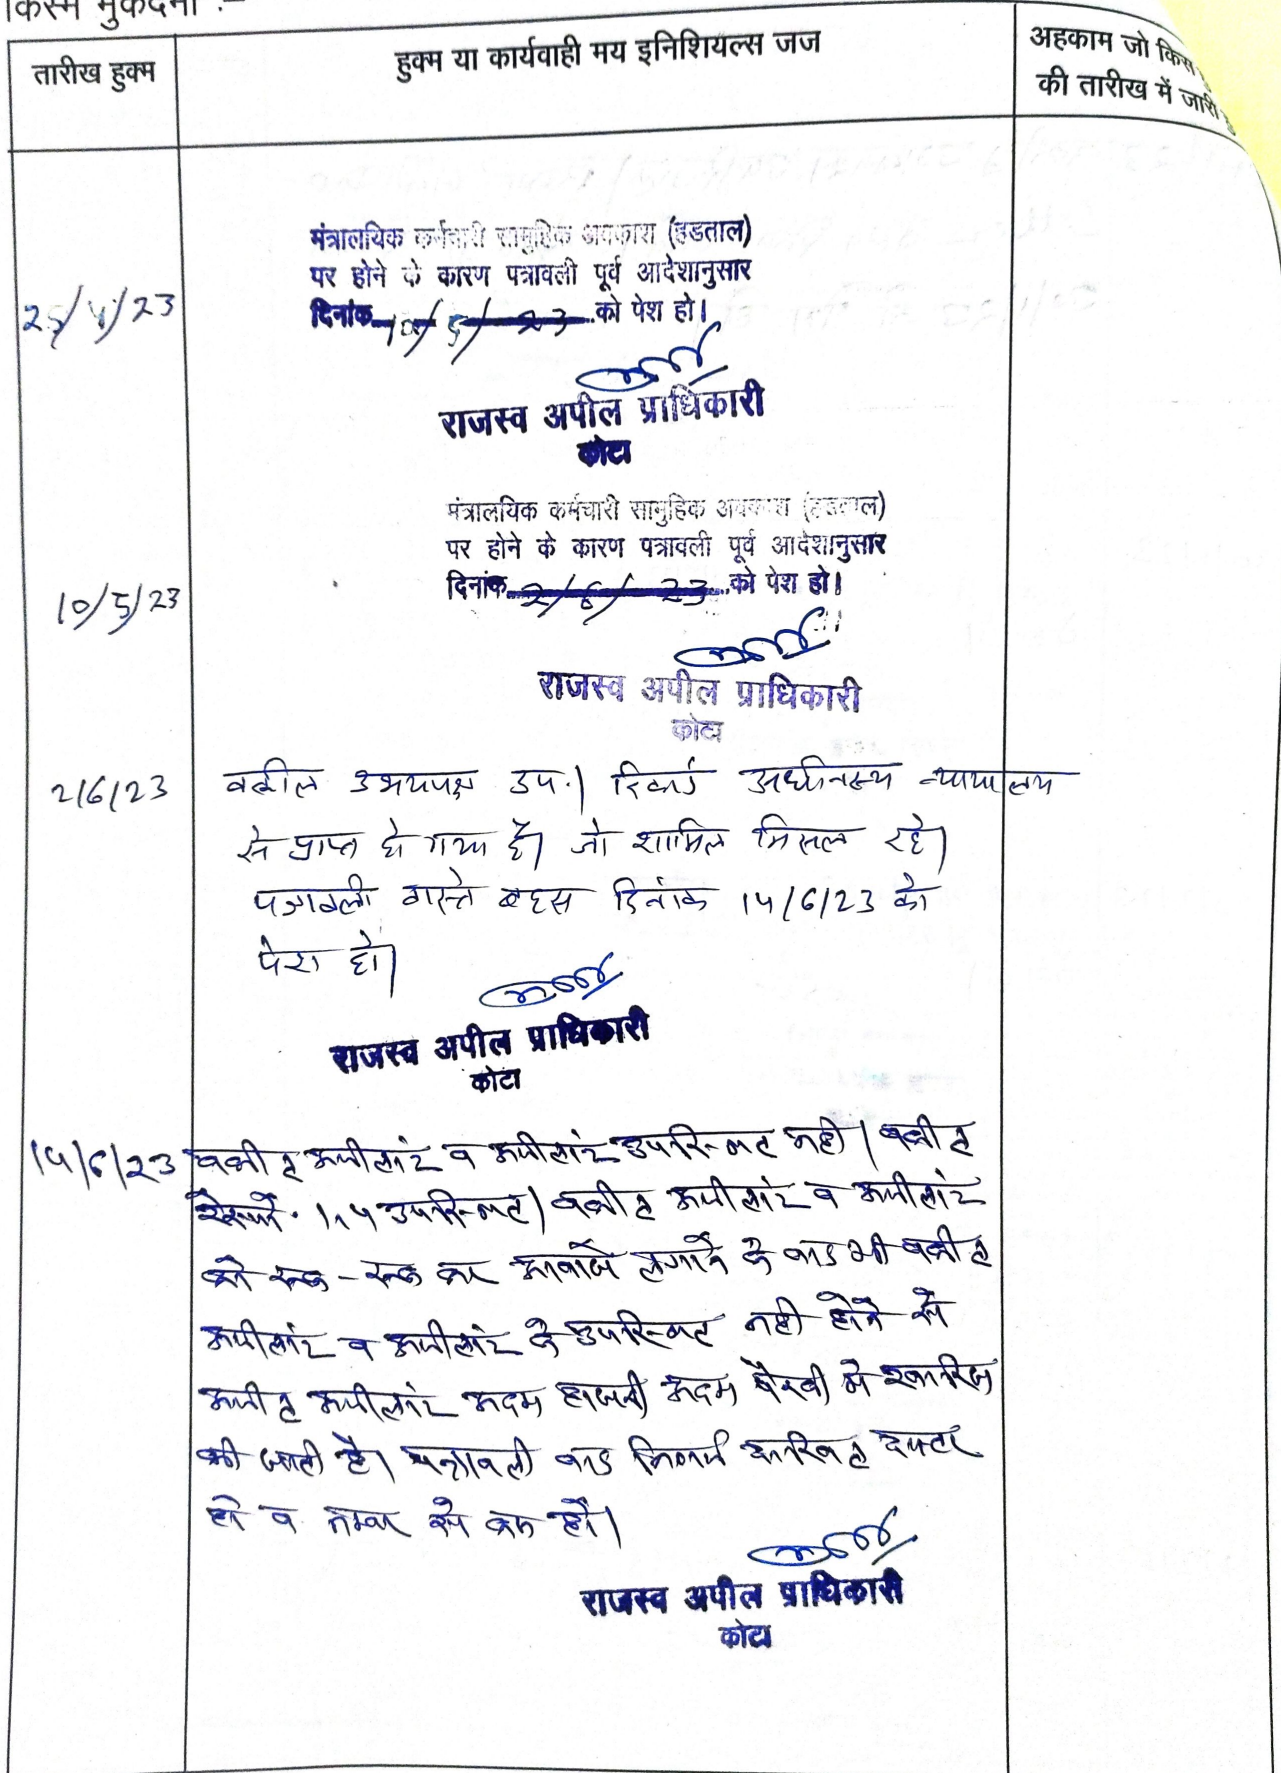 किस्म मुकदमा :-
तारीख हुक्म
हुक्म या कार्यवाही मय इनिशियल्स जज
अहकाम जो किस
की तारीख में जारी
25/4/23
मंत्रालयिक कर्मचारी सामुहिक अवकाश (हडताल)
पर होने के कारण पत्रावली पूर्व आदेशानुसार
दिनांक 10/5/23 को पेश हो।
राजस्व अपील प्राधिकारी
कोटा
10/5/23
मंत्रालयिक कर्मचारी सामुहिक अवकाश (हडताल)
पर होने के कारण पत्रावली पूर्व आदेशानुसार
दिनांक 2/6/23 को पेश हो।
राजस्व अपील प्राधिकारी
कोटा
2/6/23
वकील उभयपक्ष उप.। रिकार्ड अधीनस्थ न्यायालय
से प्राप्त हो गया है। जो शामिल मिसल रहे।
पत्रावली वास्ते बहस दिनांक 14/6/23 को
पेश हो।
राजस्व अपील प्राधिकारी
कोटा
14/6/23
वकील अपीलांट व अपीलांट उपस्थित नही। वकील
रेस्पो. 1,4 उपस्थित। वकील अपीलांट व अपीलांट
को रूक-रूक कर आवाजे लगाने के बाद भी वकील
अपीलांट व अपीलांट के उपस्थित नही होने से
अपील अपीलांट अदम हाजरी अदम पैरवी मे खारिज
की जाती है। पत्रावली बाद निर्णय दाखिल दफ्तर
हो व नम्बर से कम हो।
राजस्व अपील प्राधिकारी
कोटा